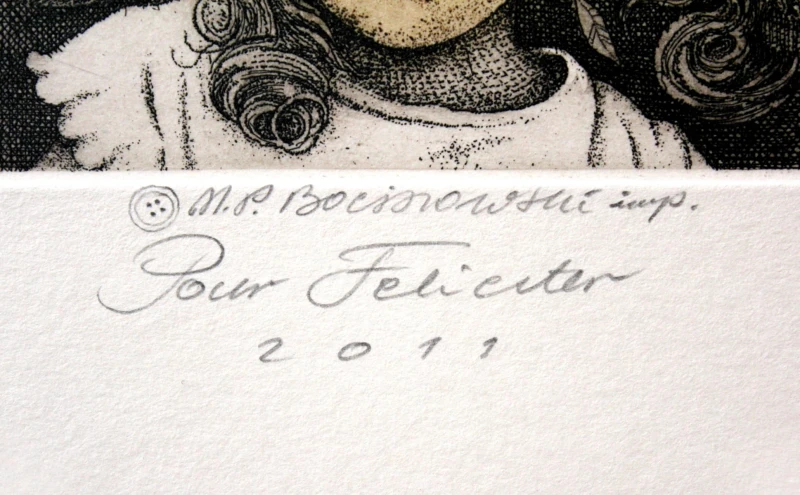 M.P. Bocianowski imp.
Pour Féliciter
2011